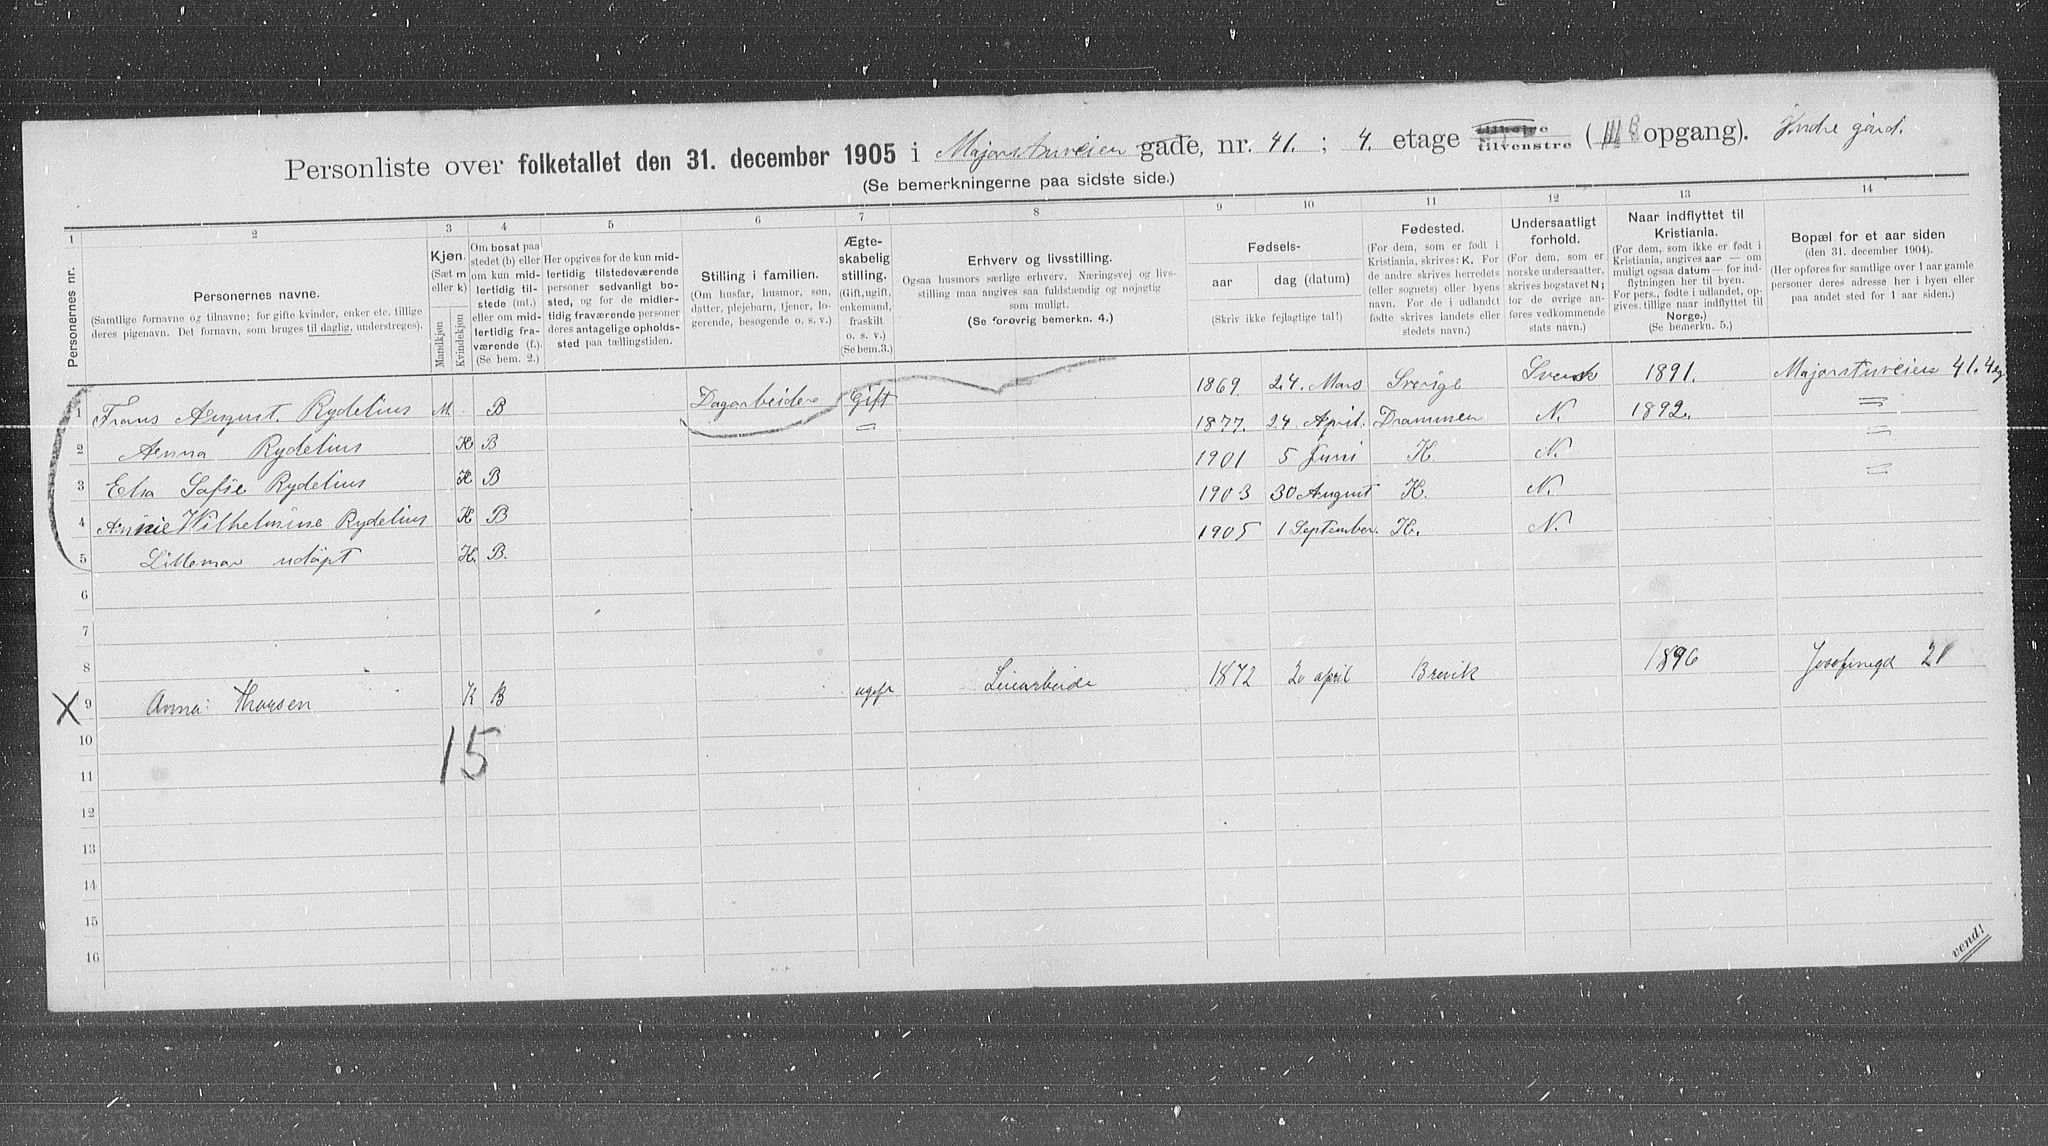 Personliste over folketallet den 31. december 1905 i Majorstuveien gade, nr. 41. ; 4. etage tilhøire tilvenstre ( III B opgang). Indre gård.
(Se bemerkningerne paa sidste side.)
1 2 3 4 5 6 7 8 9 10 11 12 13 14
Personernes nr.
Personernes navne.
(Samtlige fornavne og tilnavne; for gifte kvinder, enker etc. tillige
deres pigenavn. Det fornavn, som bruges til daglig, understreges).
Kjøn.
(Sæt m
eller k)
Mandkjøn
Kvindekjøn
Om bosat paa
stedet (b) eller
om kun mid-
lertidig til-
stede (mt.)
eller om mid-
lertidig fra-
værende (f.).
(Se bem. 2.)
Her opgives for de kun mid-
lertidig tilstedeværende
personer sedvanlig bo-
sted, og for de midler-
tidig fraværende personer
deres antagelige opholds-
sted paa tællingstiden.
Stilling i familien.
(Om husfar, husmor, søn,
datter, plejebarn, tjener, lo-
gerende, besøgende o. s. v.)
Ægte-
skabelig
stilling.
(Gift, ugift,
enkemand,
fraskilt
o. s. v.)
(Se bem. 3.)
Erhverv og livsstilling.
Ogsaa husmors særlige erhverv. Næringsvej og livs-
stilling maa angives saa fuldstændig og nøjagtig
som muligt.
(Se forøvrig bemerkn. 4.)
Fødsels-
aar
dag (datum)
(Skriv ikke fejlagtige tal!)
Fødested.
(For dem, som er født i
Kristiania, skrives: K. For
de andre skrives herredets
(eller sognets) eller byens
navn. For de i udlandet
fødte skrives landets eller
stedets navn.)
Undersaatligt
forhold.
(For dem, som er
norske undersaatter,
skrives bogstavet N;
for de øvrige an-
føres vedkommende
stats navn.)
Naar indflyttet til
Kristiania.
(For dem, som ikke er født i
Kristiania, angives aar — om
muligt ogsaa datum — for ind-
flytningen her til byen.
For pers., fødte i udlandet, op-
gives, tillige naar indflyttet til
Norge.)
(Se bemerkn. 5.)
Bopæl for et aar siden
(den 31. december 1904).
(Her opføres for samtlige over 1 aar gamle
personer deres adresse her i byen eller
paa andet sted for 1 aar siden.)
1 Frans August. Rydelius M. B Dagarbeider Gift 1869 24. Mars Sverige Svensk 1891. Majorstuveien 41. 4 eg
2 Anna Rydelius K B = 1877. 24 April. Drammen N. 1892. =
3 Elsa Sofie Rydelius K B 1901 5 Juni K. N. =
4 Annie Wilhelmine Rydelius K B 1903 30 August K. N. =
5 Lillemor udøpt K. B. 1905 1 September. K. N.
6
7
8
X 9 Anna Thorsen K B ugift Leiearbeide 1872 2 april Brevik 1896 Josefinegd 21
10
15
11
12
13
14
15
16
vend!